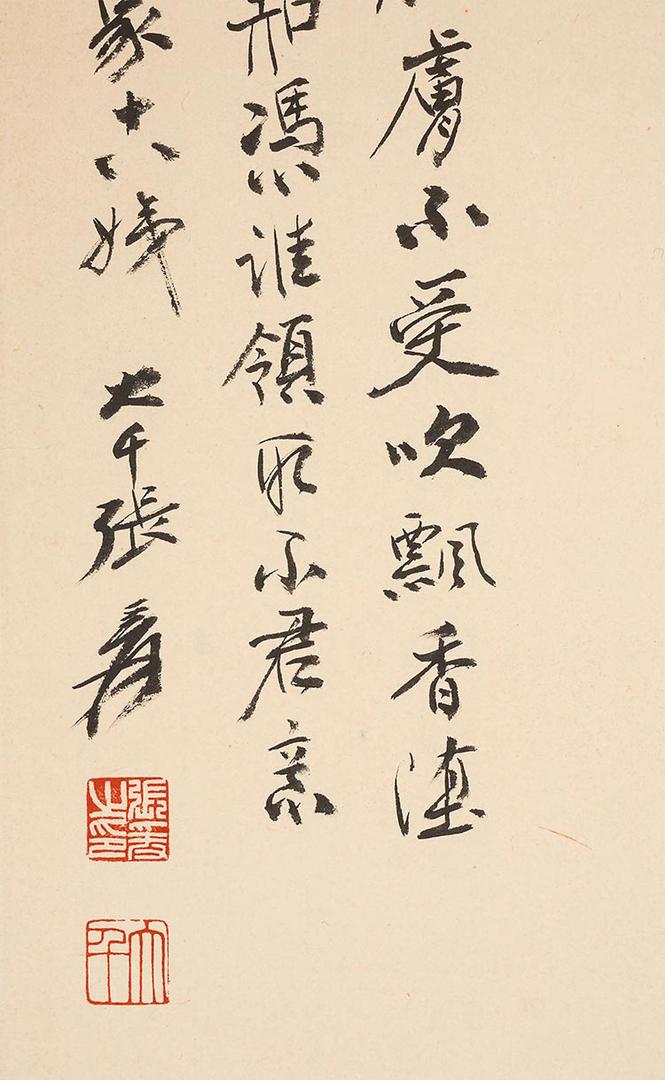 膚不受吹飄香墮
和憑誰領取東君意
家十八姨 大千張爰
張爰之印
大千